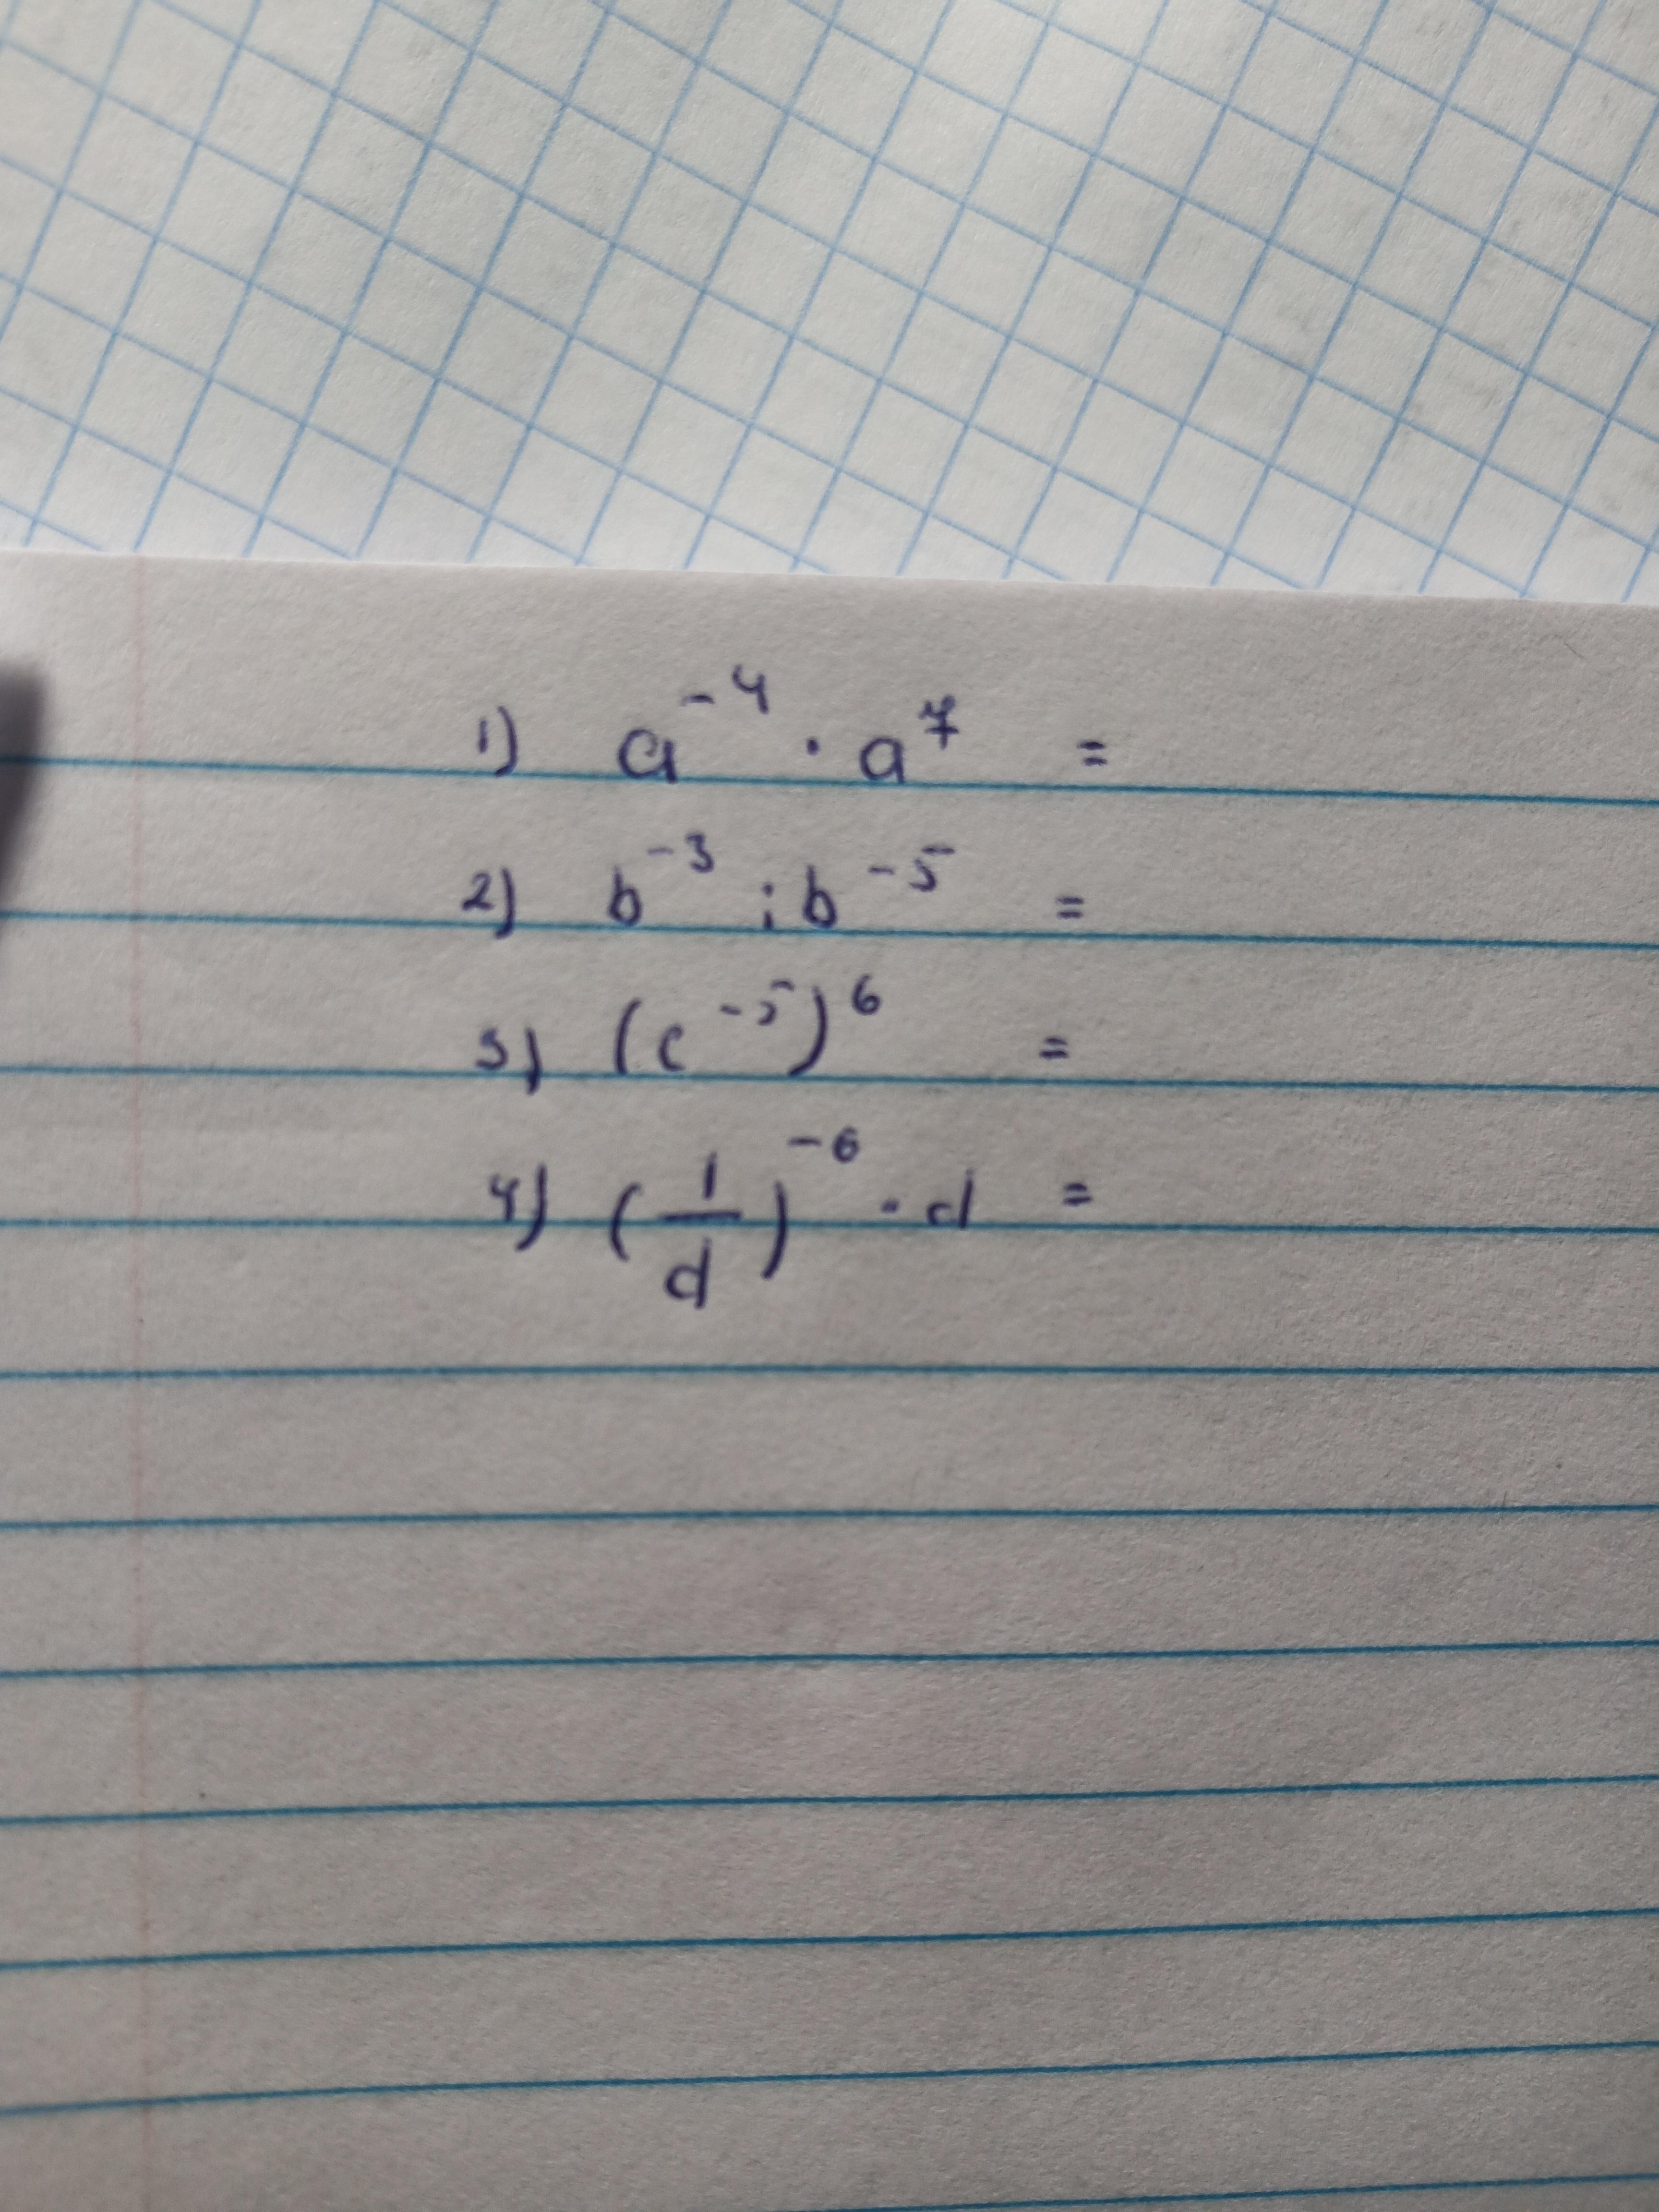 1) a⁻⁴ · a⁷ =
2) b⁻³ : b⁻⁵ =
3) (c⁻⁵)⁶ =
4) (1/d)⁻⁶ · d =